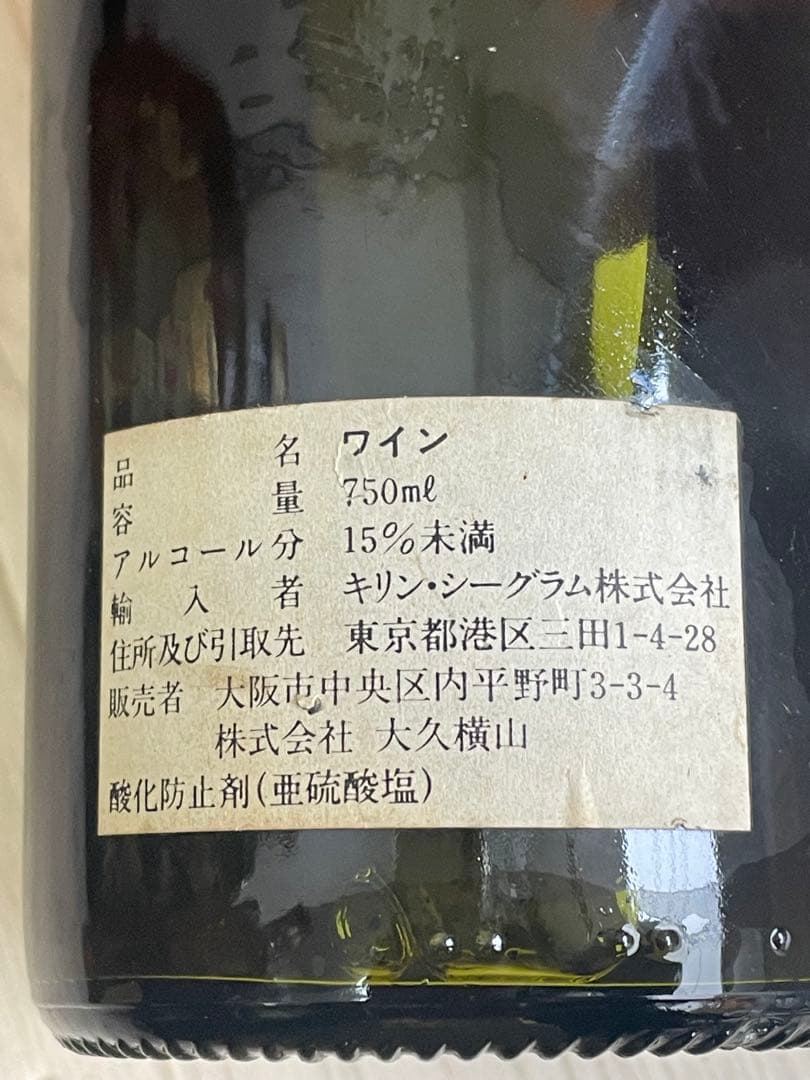 品名 ワイン
容量 750ml
アルコール分 15%未満
輸入者 キリン・シーグラム株式会社
住所及び引取先 東京都港区三田1-4-28
販売者 大阪市中央区内平野町3-3-4
株式会社 大久横山
酸化防止剤(亜硫酸塩)